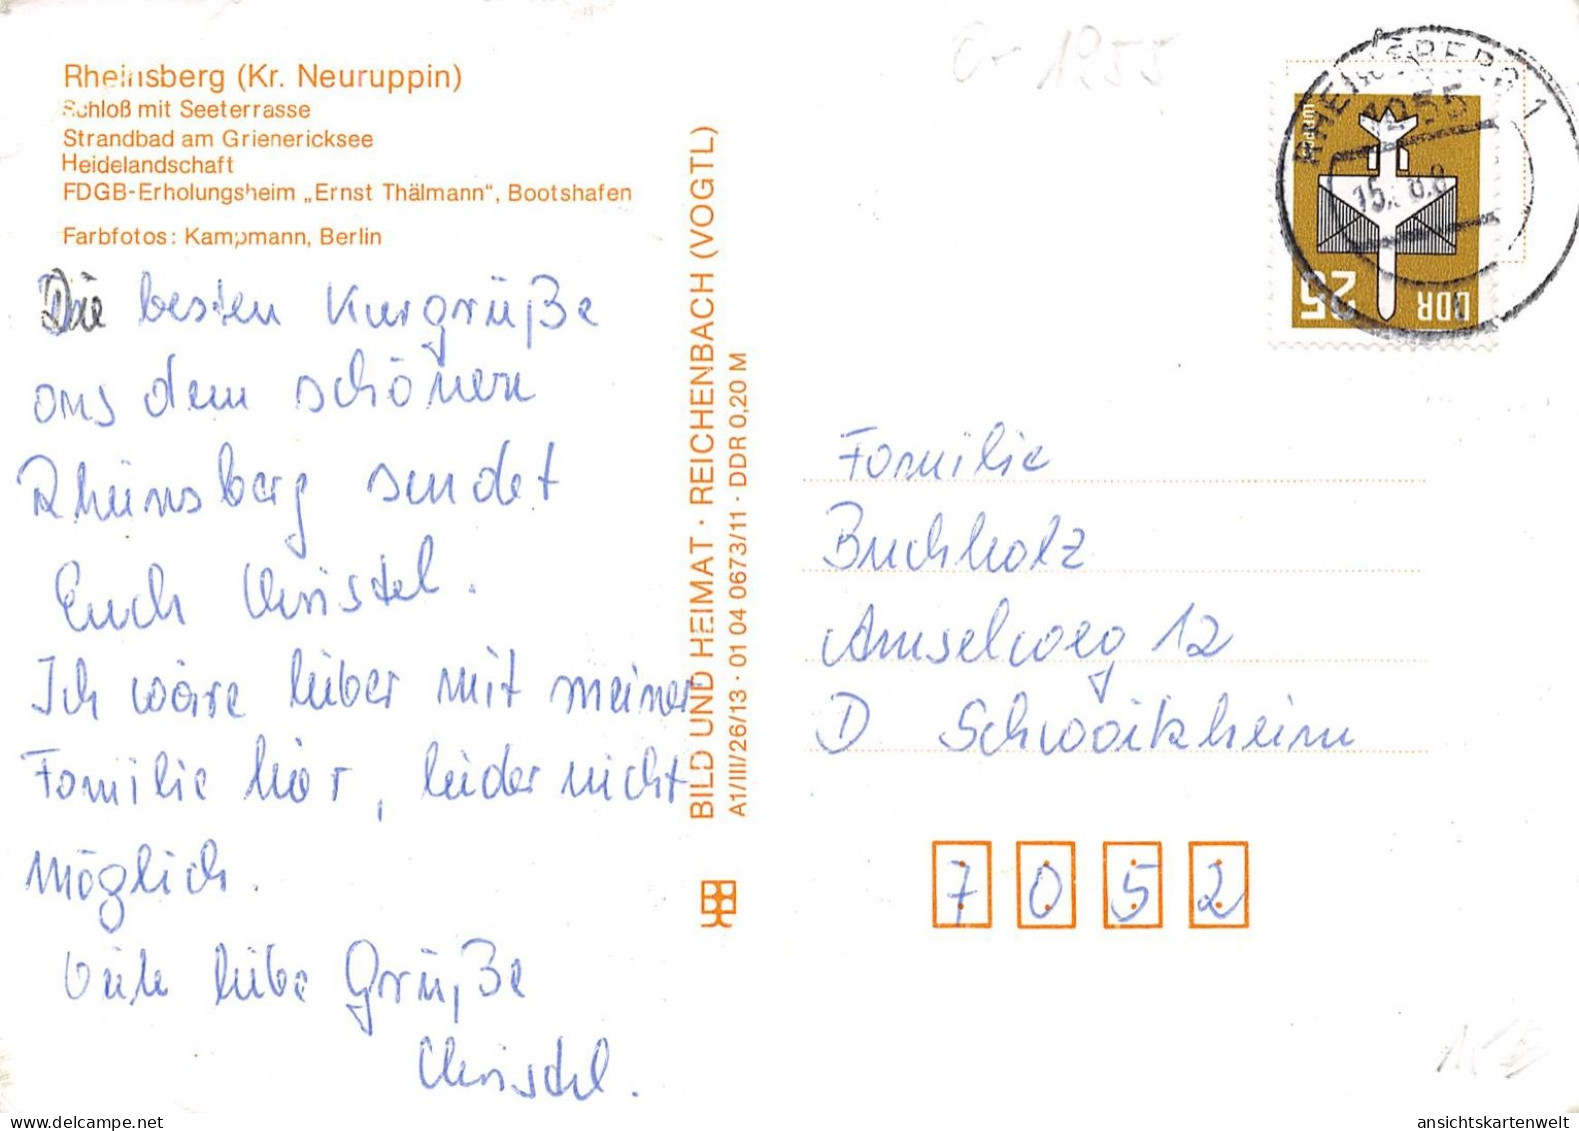 Rheinsberg (Kr. Neuruppin)
Schloß mit Seeterrasse
Strandbad am Grienericksee
Heidelandschaft
FDGB-Erholungsheim „Ernst Thälmann“, Bootshafen
Farbfotos: Kampmann, Berlin
Die besten Kurgrüße
aus dem schönen
Rheinsberg sendet
Euch Christel.
Ich wäre lieber mit meiner
Familie hier, leider nicht
möglich.
Viele liebe Grüße
Christel.
BILD UND HEIMAT · REICHENBACH (VOGTL)
A1/III/26/13 · 01 04 0673/11 · DDR 0,20 M
1955
RHEINSBERG 1
1955
15.
LUFTPOST
25
DDR
Familie
Buchholz
Amselweg 12
D Schwaikheim
7 0 5 2
ansichtskartenwelt